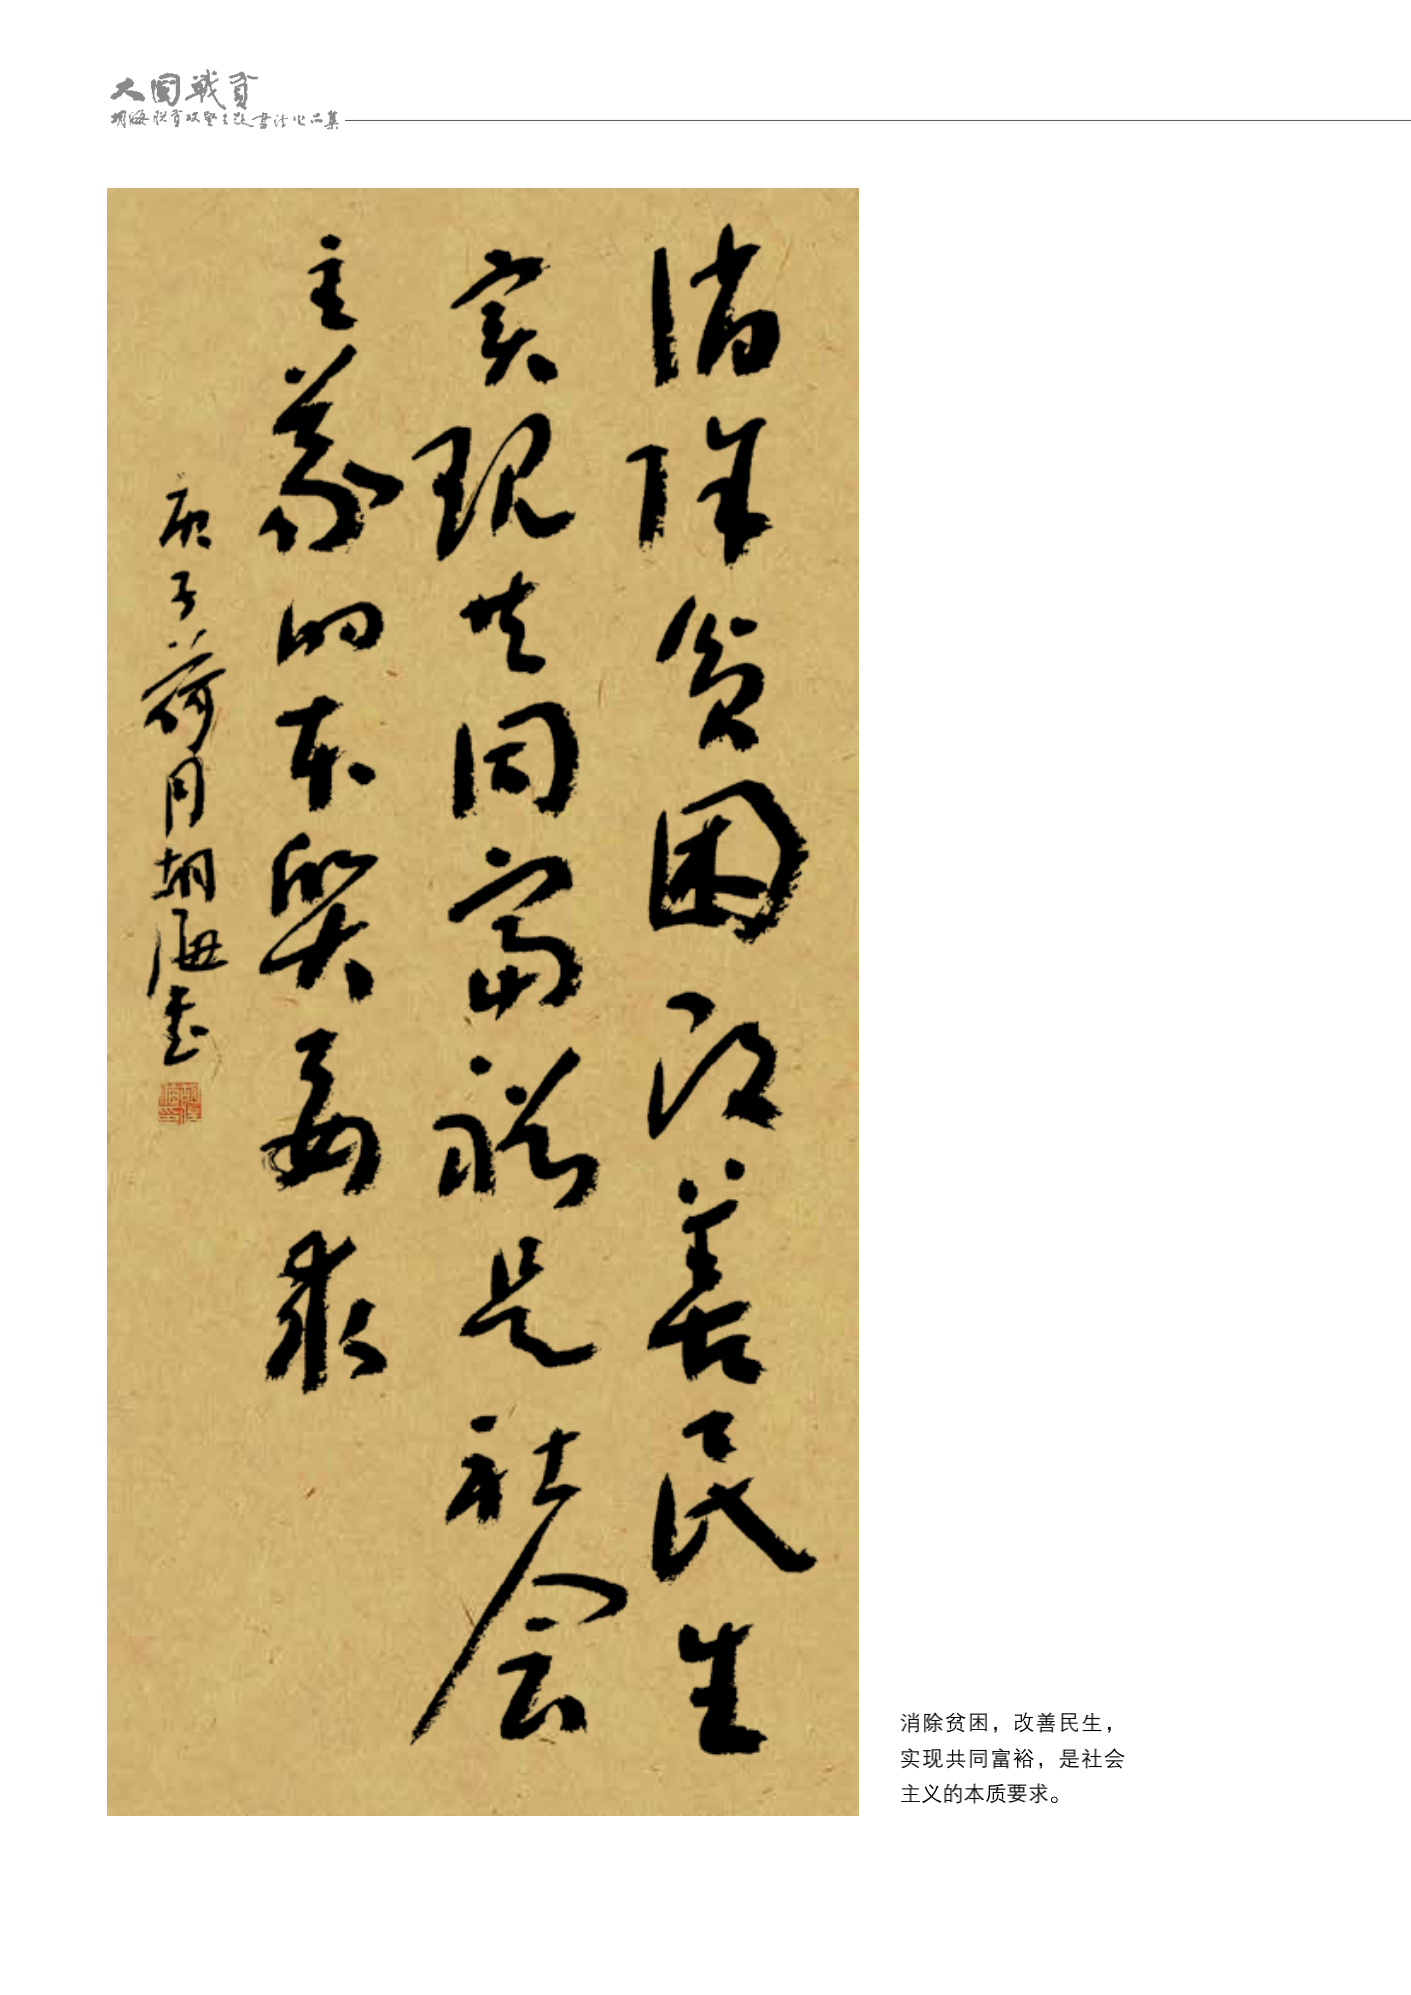 大国战贫
胡海脱贫攻坚主题书法作品集
消除贫困改善民生
实现共同富裕是社会
主義的本质要求
庚子荷月胡海书
消除贫困，改善民生，
实现共同富裕，是社会
主义的本质要求。